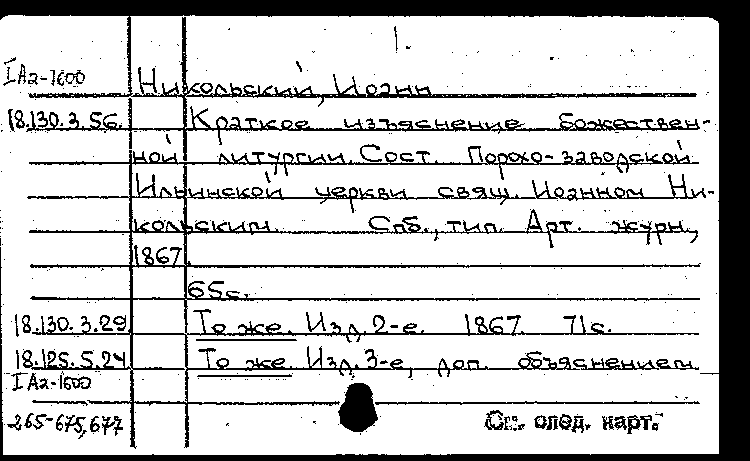 1.
IА2-1600
Никольский, Иоанн
18.130.3.56. Краткое изъяснение божествен-
ной литургии. Сост. Порохо-заводской
Ильинской церкви свящ. Иоанном Ни-
кольским. Спб., тип. Арт. журн.,
1867.
65с.
18.130.3.29. То же. Изд. 2-е. 1867. 71с.
18.125.5.24 То же. Изд. 3-е, доп. объяснением
IА2-1600
265-675,677 См. след. карт.